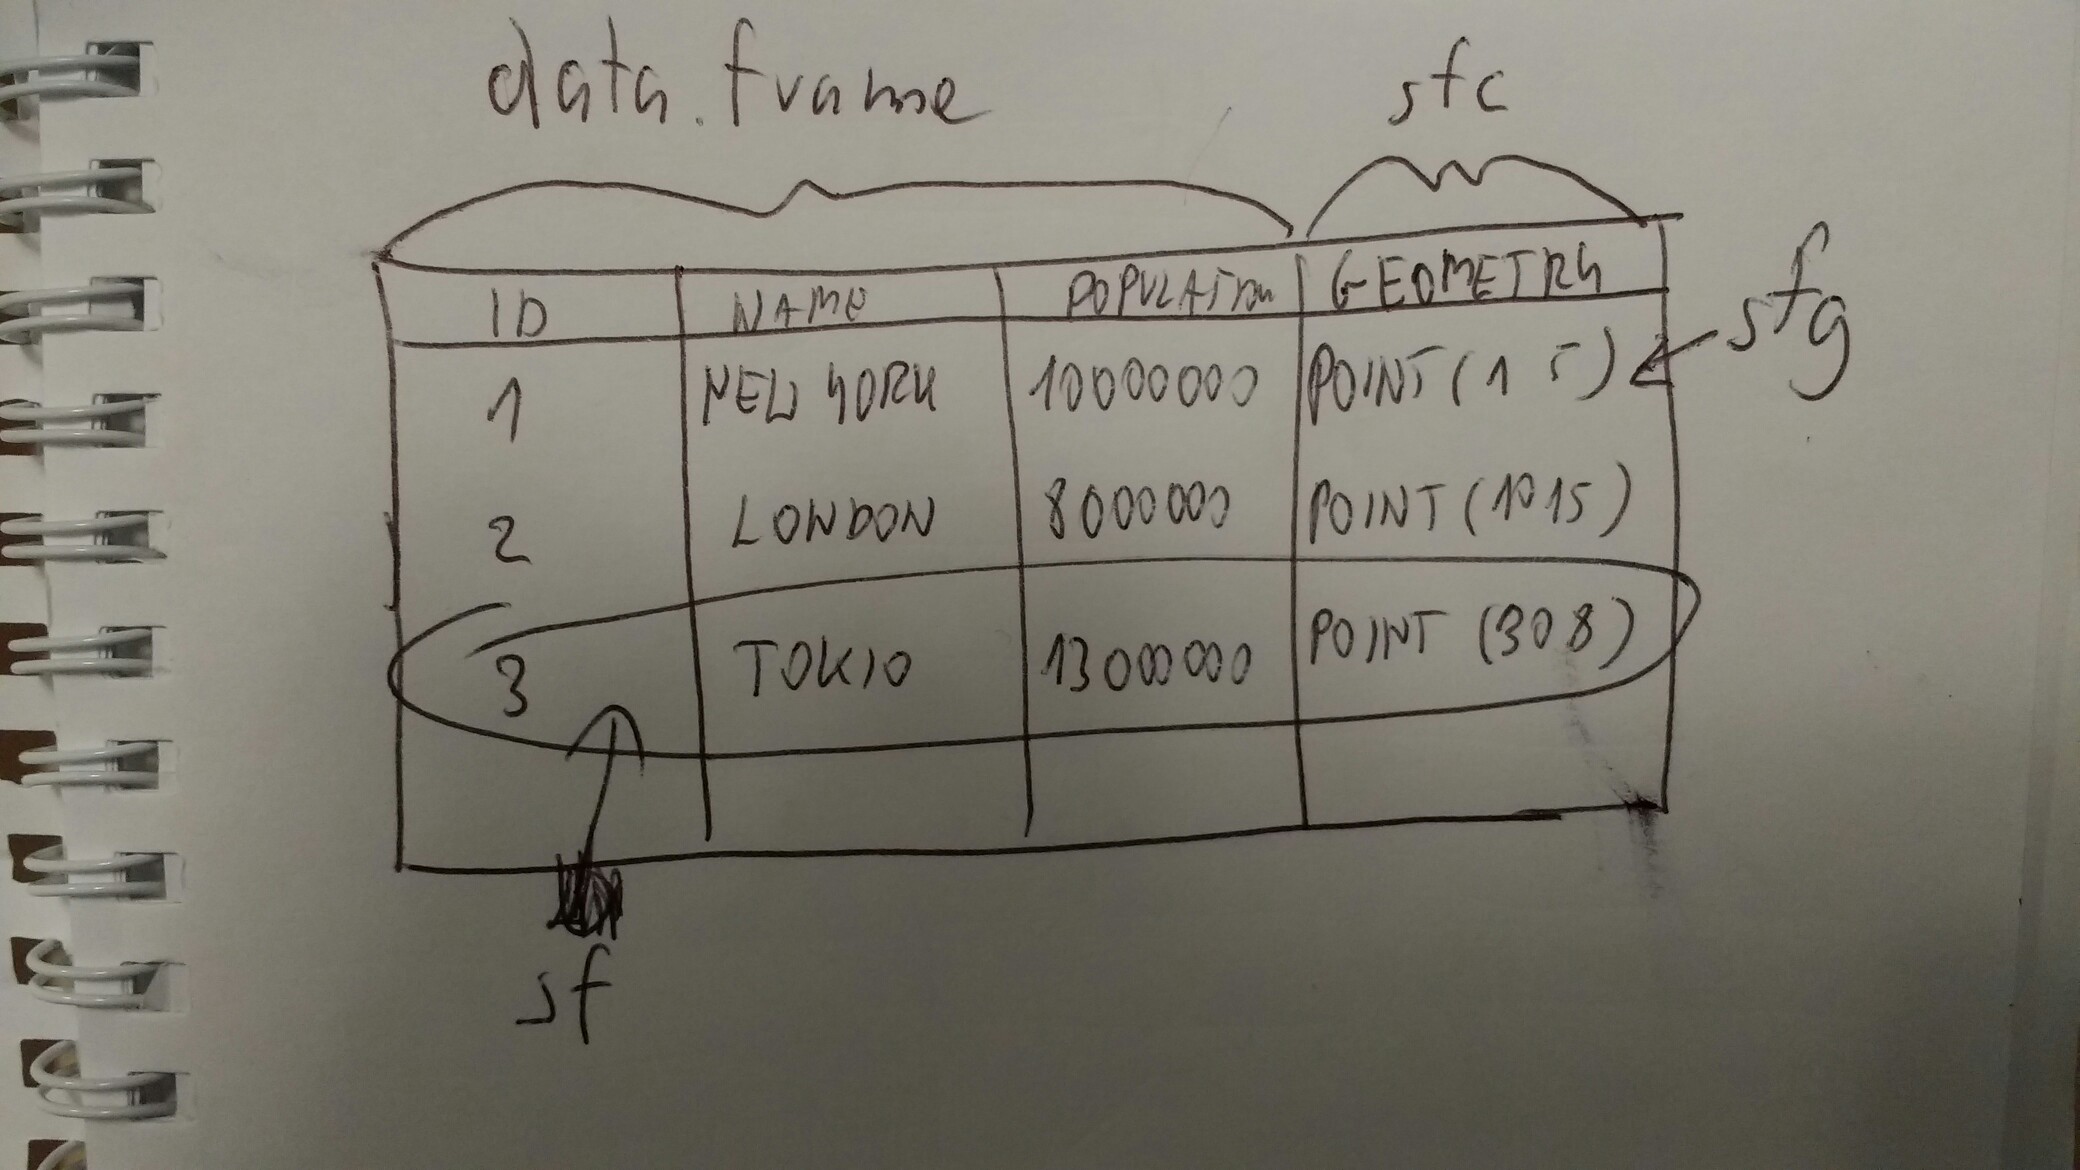 data.frame sfc
ID NAME POPULATION GEOMETRY
sfg
1 NEW YORK 10000000 POINT (1 5)
2 LONDON 8000000 POINT (10 15)
3 TOKIO 13000000 POINT (30 8)
sf